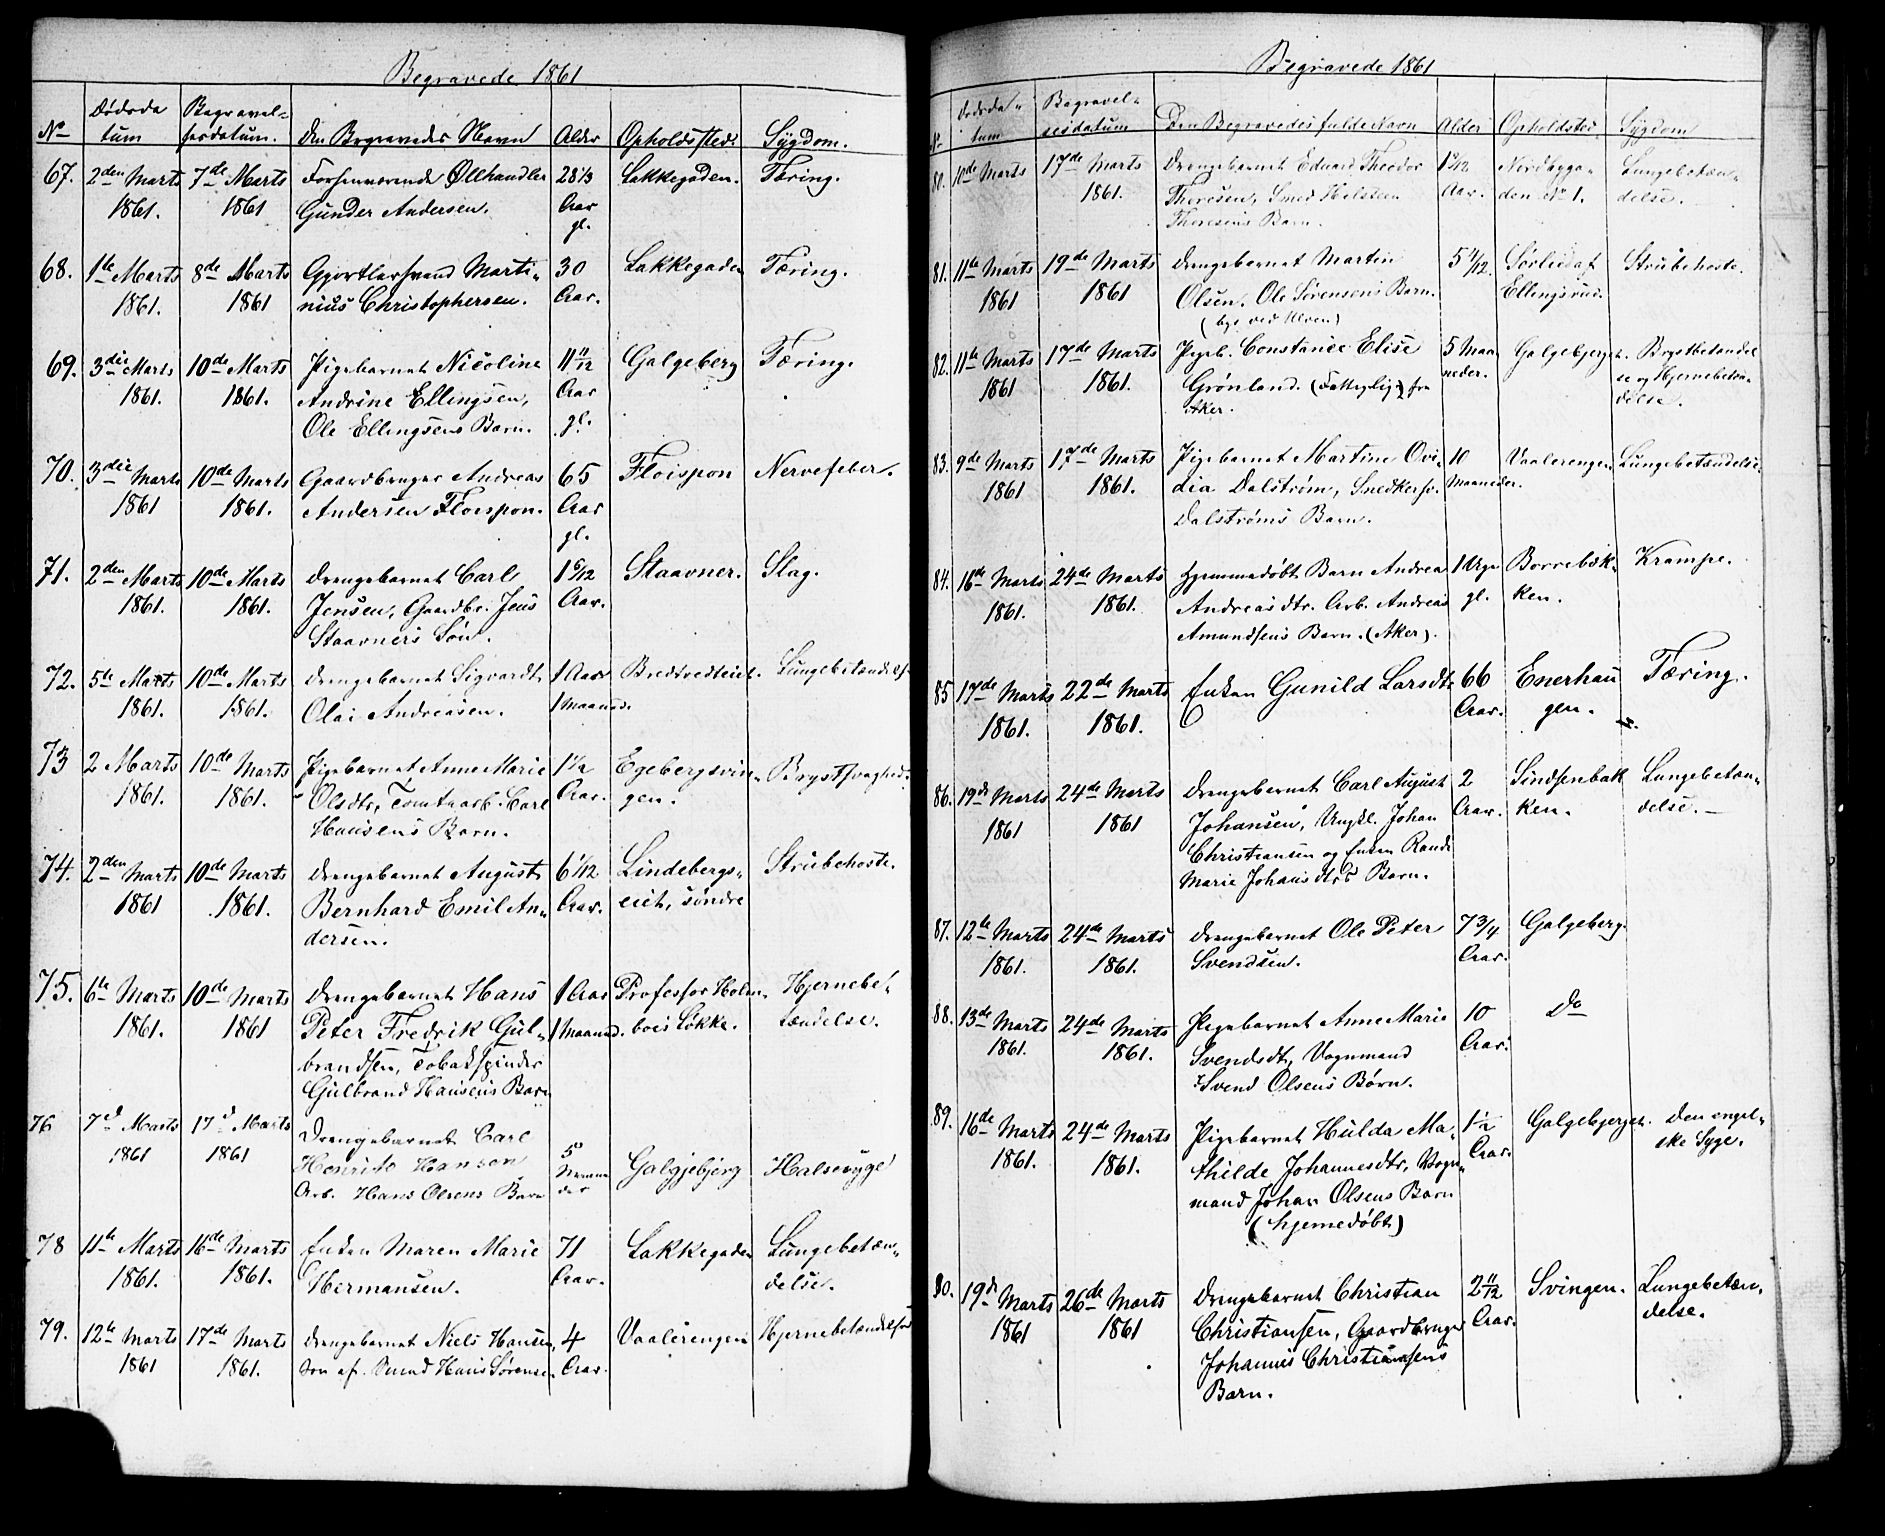 Begravede 1861
No Dødsda tum Begravel= sesdatum. Den Begravedes Navn Alder Opholdssted. Sygdom.
67. 2den Marts 7de Marts Forhenværende Ølhandler 28 1/3 Lakkegaden. Tæring.
1861. 1861 Gunder Andersen. Aar
gl.
68. 1te Marts 8de Marts Gjørtlersvend Marti- 30 Lakkegaden Tæring.
1861. 1861 nius Christophersen. Aar.
69. 3die Marts 10de Marts Pigebarnet Nicoline 11 11/12 Galgeberg Tæring.
1861. 1861. Andrine Ellingsen, Aar
Ole Ellingsens Barn. gl.
70. 3die Marts 10de Marts Gaardbruger Andreas 65 Floispon Nervefeber.
1861 1861. Andersen Floispon. Aar
gl.
71. 2den Marts 10de Marts Drengebarnet Carl 1 6/12 Staavner. Slag.
1861. 1861. Jensen, Gaardbr. Jens Aar.
Staavners Søn.
72. 5te Marts 10de Marts Drengebarnet Sigvardt 1 Aar Bredtvedteiet. Lungebetændelse
1861. 1861. Olai Andreasen. 1 Maaned.
73 2 Marts 10de Marts Pigebarnet Anne Marie 1 1/2 Egebergsvin- Brystsvaghed.
1861. 1861. Olsdtr, Tomtearb. Carl Aar. gen.
Hansens Barn.
74. 2den Marts 10de Marts Drengebarnet August 6 1/12 Lindebergs- Strubehoste.
1861 1861. Bernhard Emil An- Aar. eiet, søndre
dersen.
75. 6te Marts 10de Marts Drengebarnet Hans 1 Aar Professor Holm- Hjernebe-
1861. 1861 Peter Fredrik Gul- 1 Maaned. boes Løkke. tændelse.
brandsen, Tobakspinder
Gulbrand Hansens Barn
76 7d Marts 17d Marts Drengebarnet Carl
1861 1861 Henrik Hansen 5 Galgjebjerg Halsesyge
Arb. Hans Olsens Barn Maaneder
78 11te Marts 16de Marts Enken Maren Marie 71 Lakkegaden Lungebetæn-
1861. 1861. Hermansen. Aar. delse.
79. 12te Marts 17de Marts Drengebarnet Niels Hansen, 4 Vaalerengen Hjernebetændelse
1861 1861. Søn af Smed Hans Sørensen Aar.
Begravede 1861
No Dødsda- tum Begravel- sesdatum Den Begravedes fulde Navn Alder Opholdsted. Sygdom
80. 10de Marts 17de Marts Drengebarnet Eduard Theodor 1 9/12 Nordbyga- Lungebetæn-
1861. Thoresen, Smed Helsteen Aar. den No 1. delse.
Thoresens Barn.
81. 11te Marts 19de Marts Drengebarnet Martin 5 4/12. Sørlieaf Strubehoste.
1861 1861 Olsen. Ole Sørensens Barn. Ellingsrud.
(byr ved Ulven)
82. 11te Marts 17de Marts Pigeb. Constance Elise 5 Maa Galgebjerget. Brystbetændel
1861 1861. Grønland. (Fattiglig) fra neder. se og Hjernebetæn-
Aker. delse.
83. 9de Marts 17de Marts Pigebarnet Martine Ovi- 10 Vaalerengen Lungebetændelse
1861 1861. dia Dalstrøm, Snedkersv. Maaneder.
Dalstrøms Barn.
84. 16de Marts 24de Marts Hjemmedøbt Barn Andrea 1 Uge Borrebæk- Krampe.
1861. 1861. Andreasdtr. Arb. Andreas gl. ken.
Amundsens Barn. (Aker).
85 17de Marts 22de Marts Enken Gunild Larsdtr 66 Enerhau Tæring.
1861. 1861. Aar. gen.
86. 19de Marts 24de Marts Drengebarnet Carl August 2 Sindsenbak Lungebetæn-
1861 1861 Johansen, Ungkl. Johan Aar. ken. delse.
Christiansen og Enken Randi
Marie Johansdtrs Barn.
87. 12te Marts 24de Marts Drengebarnet Ole Peter 7 3/4 Galgeberg.
1861. 1861. Svendsen. Aar.
88. 13de Marts 24de Marts Pigebarnet Anne Marie 10 Do
1861. 1861. Svendsdt, Vognmand Aar.
Svend Olsens Børn.
89. 16de Marts 24de Marts Pigebarnet Hulda Ma- 1 1/2 Galgebjerget. Den engel-
1861. 1861. thilde Johannesdtr, Vogn- Aar. ske Syge.
mand Johan Olsens Barn
(hjemedøbt)
90. 19de Marts 26de Marts Drengebarnet Christian 2 11/12 Svingen. Lungebetæn-
1861 1861 Christiansen, Gaardbruger Aar. delse.
Johannes Christiansens
Barn.